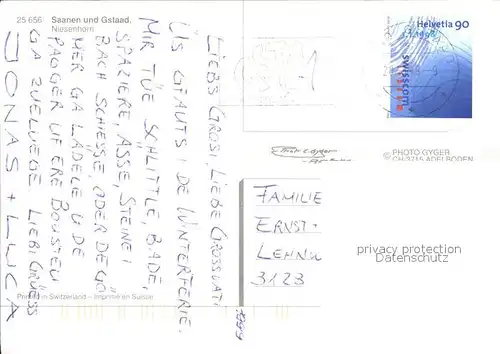 25 656 Saanen und Gstaad,
Niesenhorn
LIEBS GROSI, LIEBE GROSSATI
ÜS GFAUTS I DE WINTERFERIE.
MIR TÜE SCHLITTLE, BADE,
SPAZIERE, ÄSSE, STEINE I
BACH SCHIESSE ODER DE GÖ
MER GA LÄDELE U DE
BAGGER UF ERE BOUSTEU
GA ZUELUEGE LIEBI GRÜESS
JONAS + LUCA
Helvetia 90
1.1.1998
SWISSCOM
© PHOTO GYGER
CH-3715 ADELBODEN
FAMILIE
ERNST-
3123
privacy protection
Datenschutz
Printed in Switzerland – Imprimé en Suisse